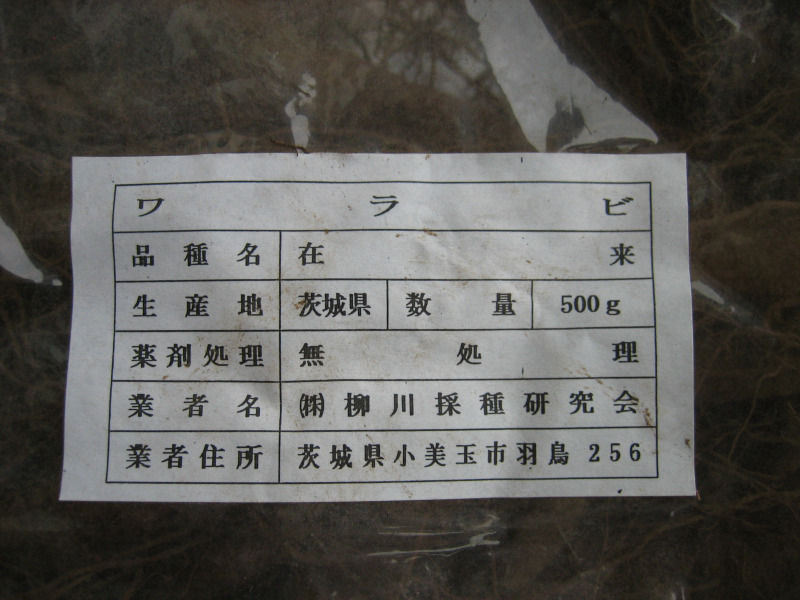 ワラビ
品種名 在来
生産地 茨城県 数量 500g
薬剤処理 無処理
業者名 ㈱柳川採種研究会
業者住所 茨城県小美玉市羽鳥256